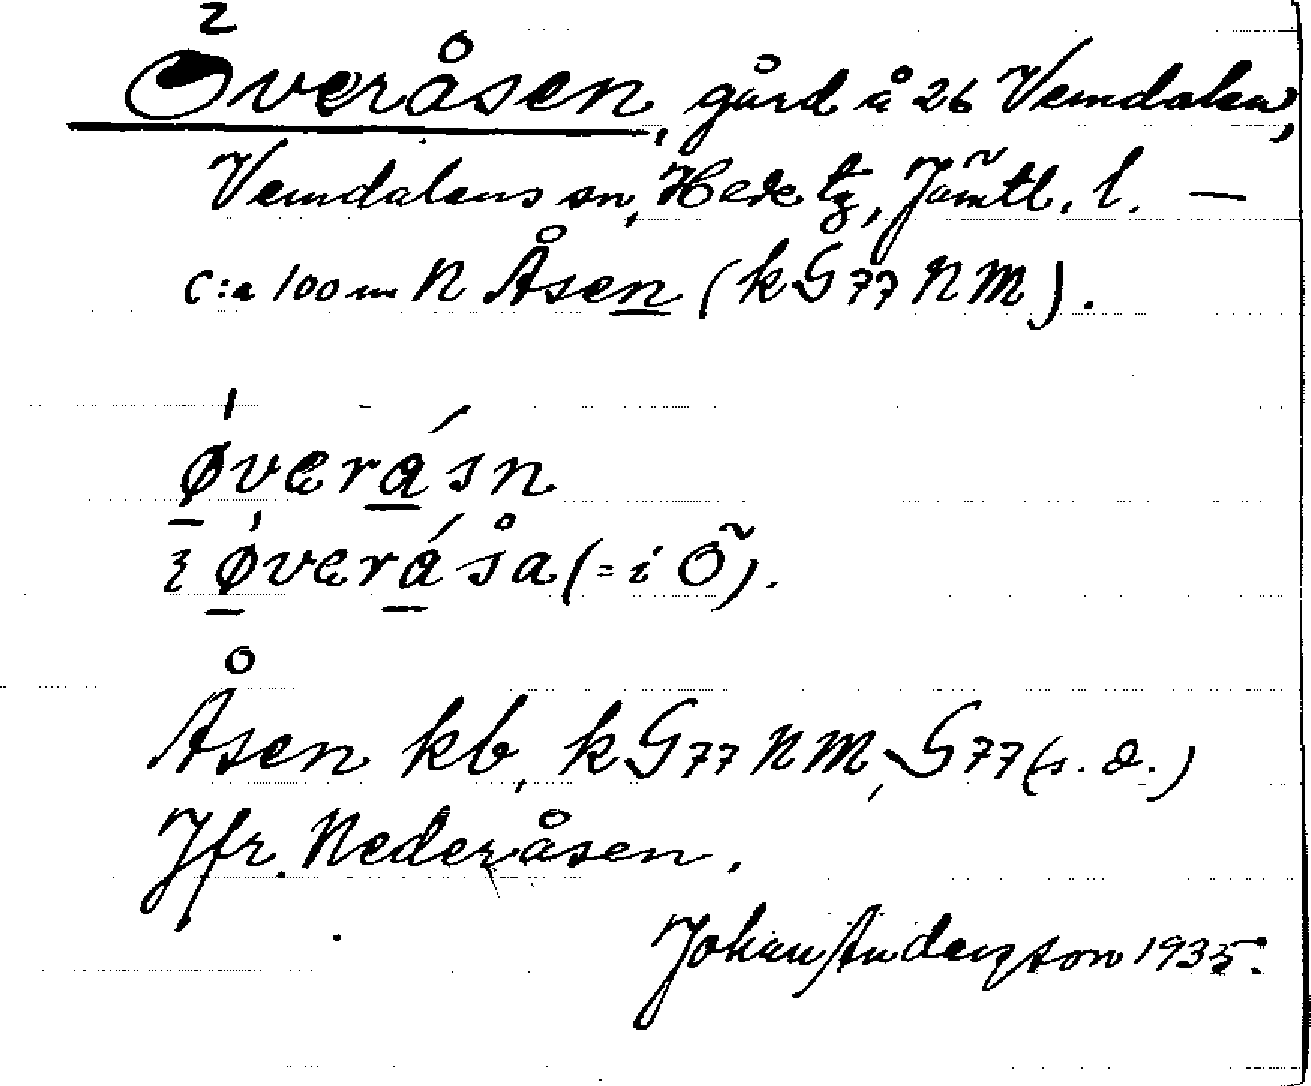 Överåsen, gård å 26 Vemdalen,
Vemdalens sn, Hede tg, Jämtl. l. —
c:a 100 m N Åsen (kG77NM).
øverasn
øveråsa (= i Ö).
Åsen kb, kG77NM, G77 (s. d.)
Jfr. Nederåsen.
Johan Anderzson 1935.